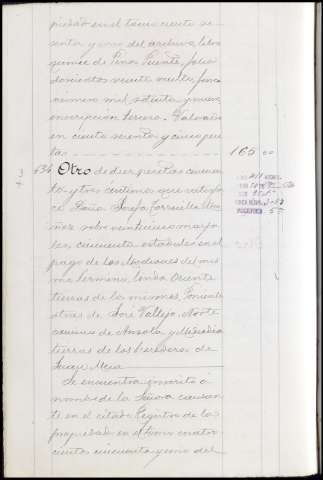 piedad en el tomo ciento se-
senta y uno del archivo, libro
quince de Pinos Puente, folio
doscientos veinte vuelto, finca
número mil setenta y nueve
inscripción tercera. Valorado
en ciento sesenta y cinco pese-
tas 165 00
636 Otro de diez pesetas cincuen-
ta y tres céntimos que satisfa-
ce Doña Josefa Torrubles
sobre veintiuno marja-
les, cincuenta estadales en el
pago de los del mis-
mo término, linda Oriente
tierras de la misma, Poniente
otras de José Vallejo, Norte
camino de Ansola y Mediodía
tierras de los herederos de
Mesa
Se encuentra inscrito á
nombre de la Señora causan-
te en el citado Registro de la
propiedad en el tomo cuatro-
cientos cincuenta y uno del